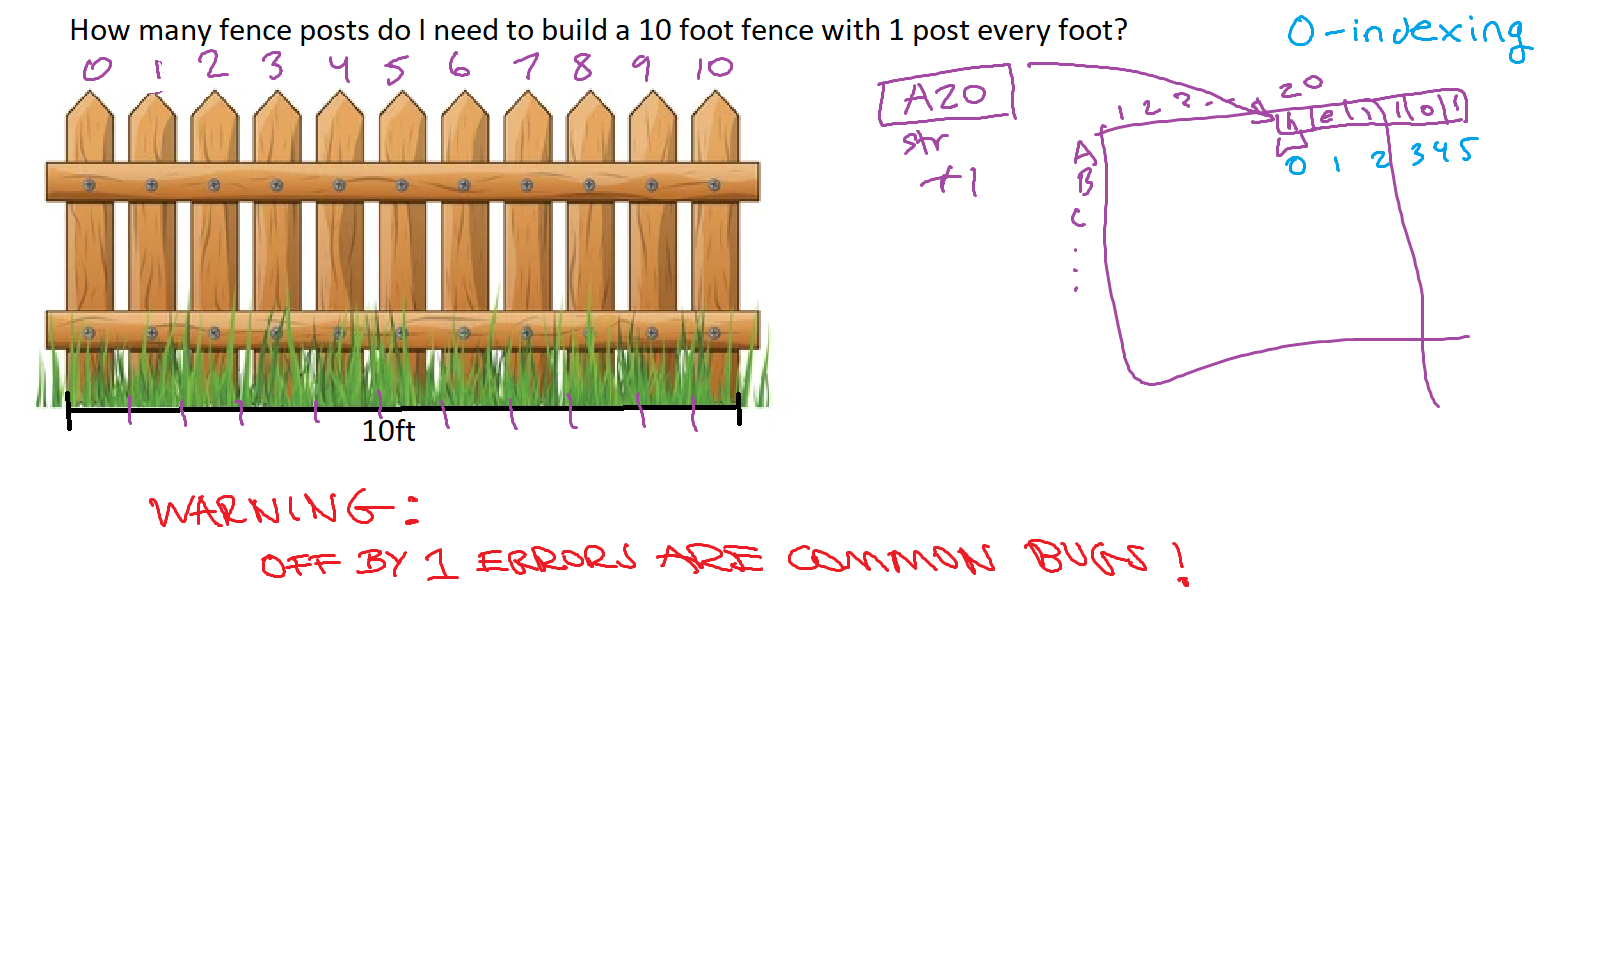 How many fence posts do I need to build a 10 foot fence with 1 post every foot?
0-indexing
0 1 2 3 4 5 6 7 8 9 10
A20
str
+1
1 2 3 - - 20
h e l l o !
0 1 2 3 4 5
A
B
C
.
.
.
10ft
WARNING:
OFF BY 1 ERRORS ARE COMMON BUGS!